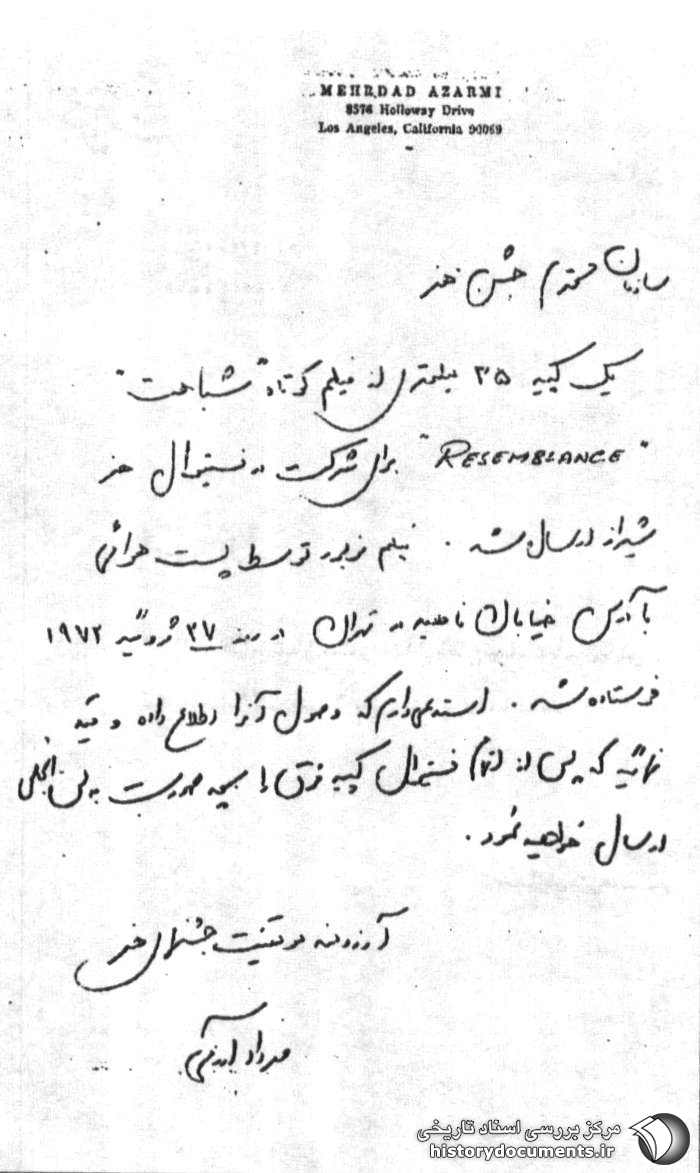 MEHRDAD AZARMI
8576 Holloway Drive
Los Angeles, California 90069
سازمان محترم جشن هنر
یک کپیه ۳۵ میلیمتری از فیلم کوتاه "شباهت"
"RESEMBLANCE" برای شرکت در فستیوال هنر
شیراز ارسال شد. فیلم مزبور توسط پست هوائی
با آدرس خیابان در تهران در روز ۲۷ ژوئیه ۱۹۷۲
فرستاده شد. استدعا دارم که وصول آنرا اطلاع داده و قید
نمائید که پس از اتمام فستیوال کپیه فوق را بچه صورت به لس آنجلس
ارسال خواهید نمود.
آرزومند موفقیت جشن هنر
مهرداد آذرمی
مرکز بررسی اسناد تاریخی
historydocuments.ir